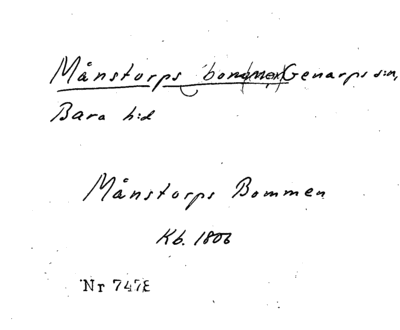 Månstorps bommen Genarps s:n,
Bara h:d
Månstorps Bommen
Kb. 1806
Nr 7478